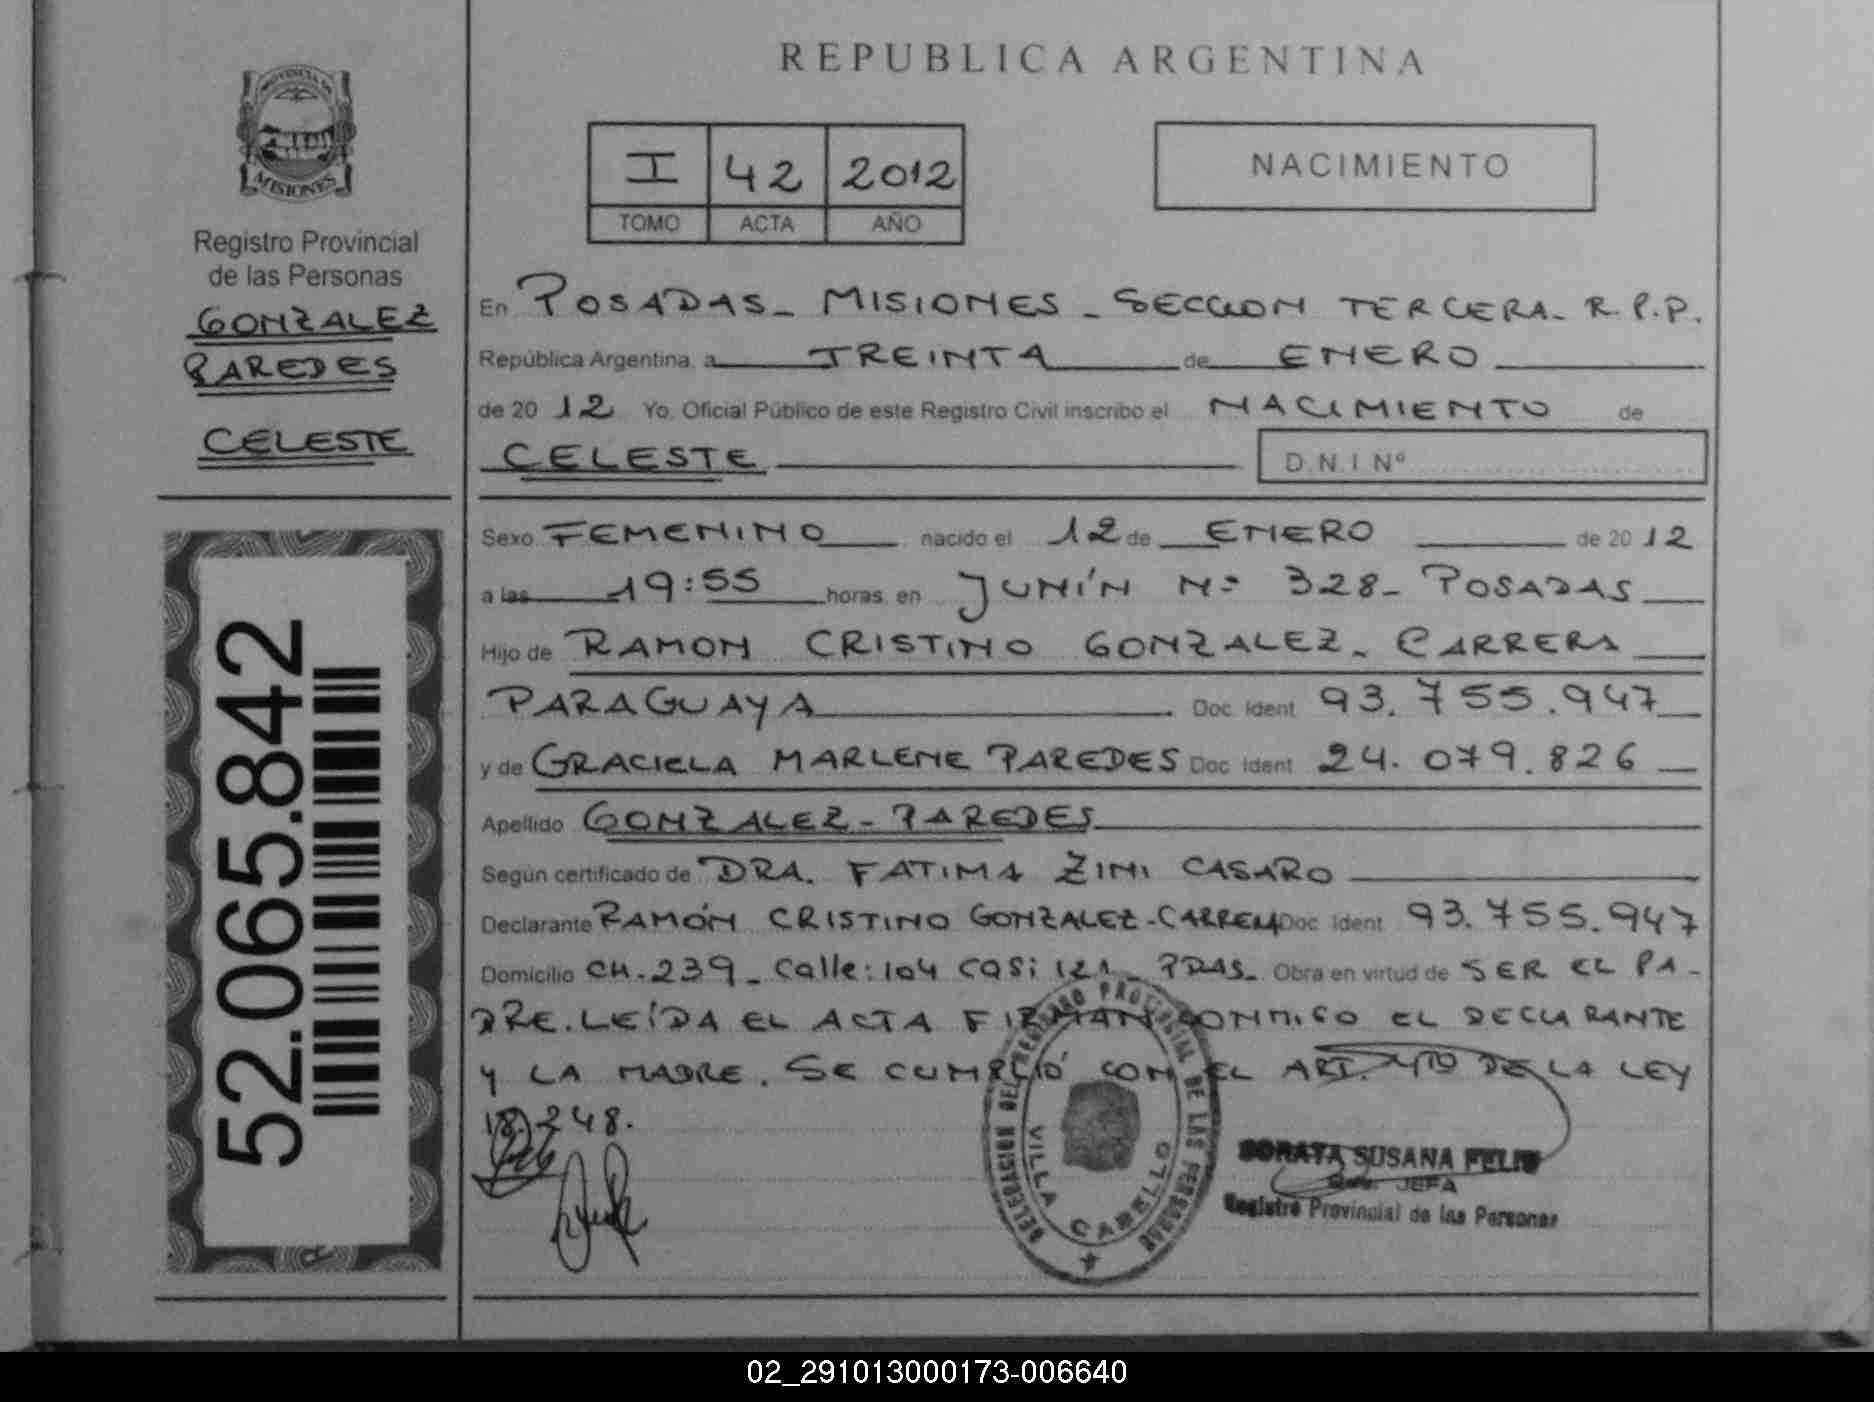 REPUBLICA ARGENTINA
PROVINCIA DE
MISIONES
Registro Provincial
de las Personas
GONZALEZ
PAREDES
CELESTE
52.065.842
I 42 2012
TOMO ACTA AÑO
NACIMIENTO
En POSADAS_ MISIONES _ SECCION TERCERA_ R.P.P.
República Argentina, a TREINTA de ENERO
de 20 12 Yo, Oficial Público de este Registro Civil inscribo el NACIMIENTO de
CELESTE D.N.I Nº
Sexo FEMENINO nacido el 12 de ENERO de 20 12
a las 19:55 horas, en JUNÍN Nº 328_ POSADAS
Hijo de RAMON CRISTINO GONZALEZ_ CARRERA
PARAGUAYA Doc. Ident. 93.755.947
y de GRACIELA MARLENE PAREDES Doc. Ident. 24.079.826
Apellido GONZALEZ - PAREDES
Según certificado de DRA. FATIMA ZINI CASARO
Declarante RAMÓN CRISTINO GONZALEZ-CARRERA Doc. Ident. 93.755.947
Domicilio CH.239_ Calle: 104 CASI 121_ PDAS_ Obra en virtud de SER EL PA-
DRE. LEÍDA EL ACTA FIRMAN CONMIGO EL DECLARANTE
Y LA MADRE. SE CUMPLIÓ CON EL ART. 4TO DE LA LEY
18.248.
DELEGACION DEL REGISTRO PROVINCIAL DE LAS PERSONAS
VILLA CABELLO
SORAYA SUSANA FELIP
JEFA
Registro Provincial de las Personas
02_291013000173-006640